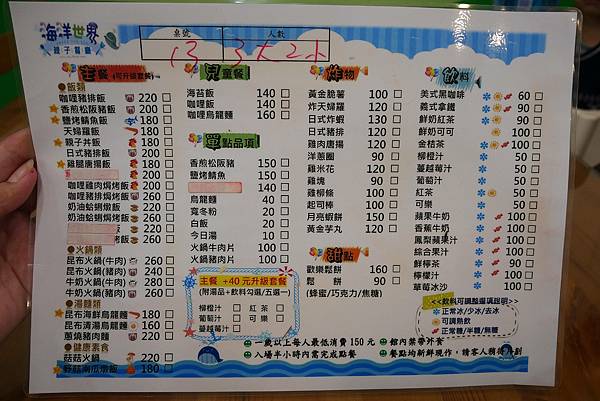 海洋世界
親子餐廳
桌號 人數
13 3大2小
主餐(可升級套餐)
●飯類
咖哩豬排飯 220
香煎松阪豬飯 200
鹽烤鯖魚飯 180
天婦羅飯 180
親子丼飯 180
日式豬排飯 200
雞腿唐揚飯 180
180
咖哩雞肉焗烤飯 220
咖哩豬排焗烤飯 240
奶油蛤蜊焗烤飯 220
奶油蛤蜊燉飯 200
焗烤飯 220
燉飯 200
●火鍋類
昆布火鍋(牛肉) 260
昆布火鍋(豬肉) 240
牛奶火鍋(牛肉) 280
牛奶火鍋(豬肉) 260
●湯麵類
昆布海鮮烏龍麵 180
昆布清湯烏龍麵 160
蔥燒豬肉麵 220
●健康素食
菇菇火鍋 220
野菇南瓜燉飯 180
兒童餐
海苔飯 140
咖哩飯 140
咖哩烏龍麵 160
單點品項
香煎松阪豬 150
鹽烤鯖魚 150
140
烏龍麵 40
寬冬粉 20
白飯 20
今日湯 30
火鍋牛肉片 120
火鍋豬肉片 100
主餐 +40元升級套餐
(附湯品+飲料勾選/五選一)
柳橙汁 紅茶
葡萄汁 可樂
蔓越莓汁
炸物
黃金脆薯 100
炸天婦羅 120
日式炸蝦 130
日式豬排 120
雞肉唐揚 120
洋蔥圈 90
雞米花 120
雞塊 90
雞柳條 100
起司棒 100
月亮蝦餅 150
黃金芋丸 120
甜點
歡樂鬆餅 160
鬆餅 90
(蜂蜜/巧克力/焦糖)
飲料
美式黑咖啡 60
義式拿鐵 90
鮮奶紅茶 100
鮮奶可可 100
金桔茶 100
柳橙汁 50
蔓越莓汁 50
葡萄汁 50
紅茶 50
可樂 50
蘋果牛奶 100
香蕉牛奶 100
鳳梨蘋果汁 100
綜合果汁 100
鮮檸茶 90
檸檬汁 100
草莓冰沙 100
<<飲料可調酸甜請說明>>
正常冰/少冰/去冰
可調熱飲
正常糖/半糖/無糖
一歲以上每人最低消費150元 館內禁帶外食
入場半小時內需完成點餐 餐點均新鮮現作，請客人稍待片刻